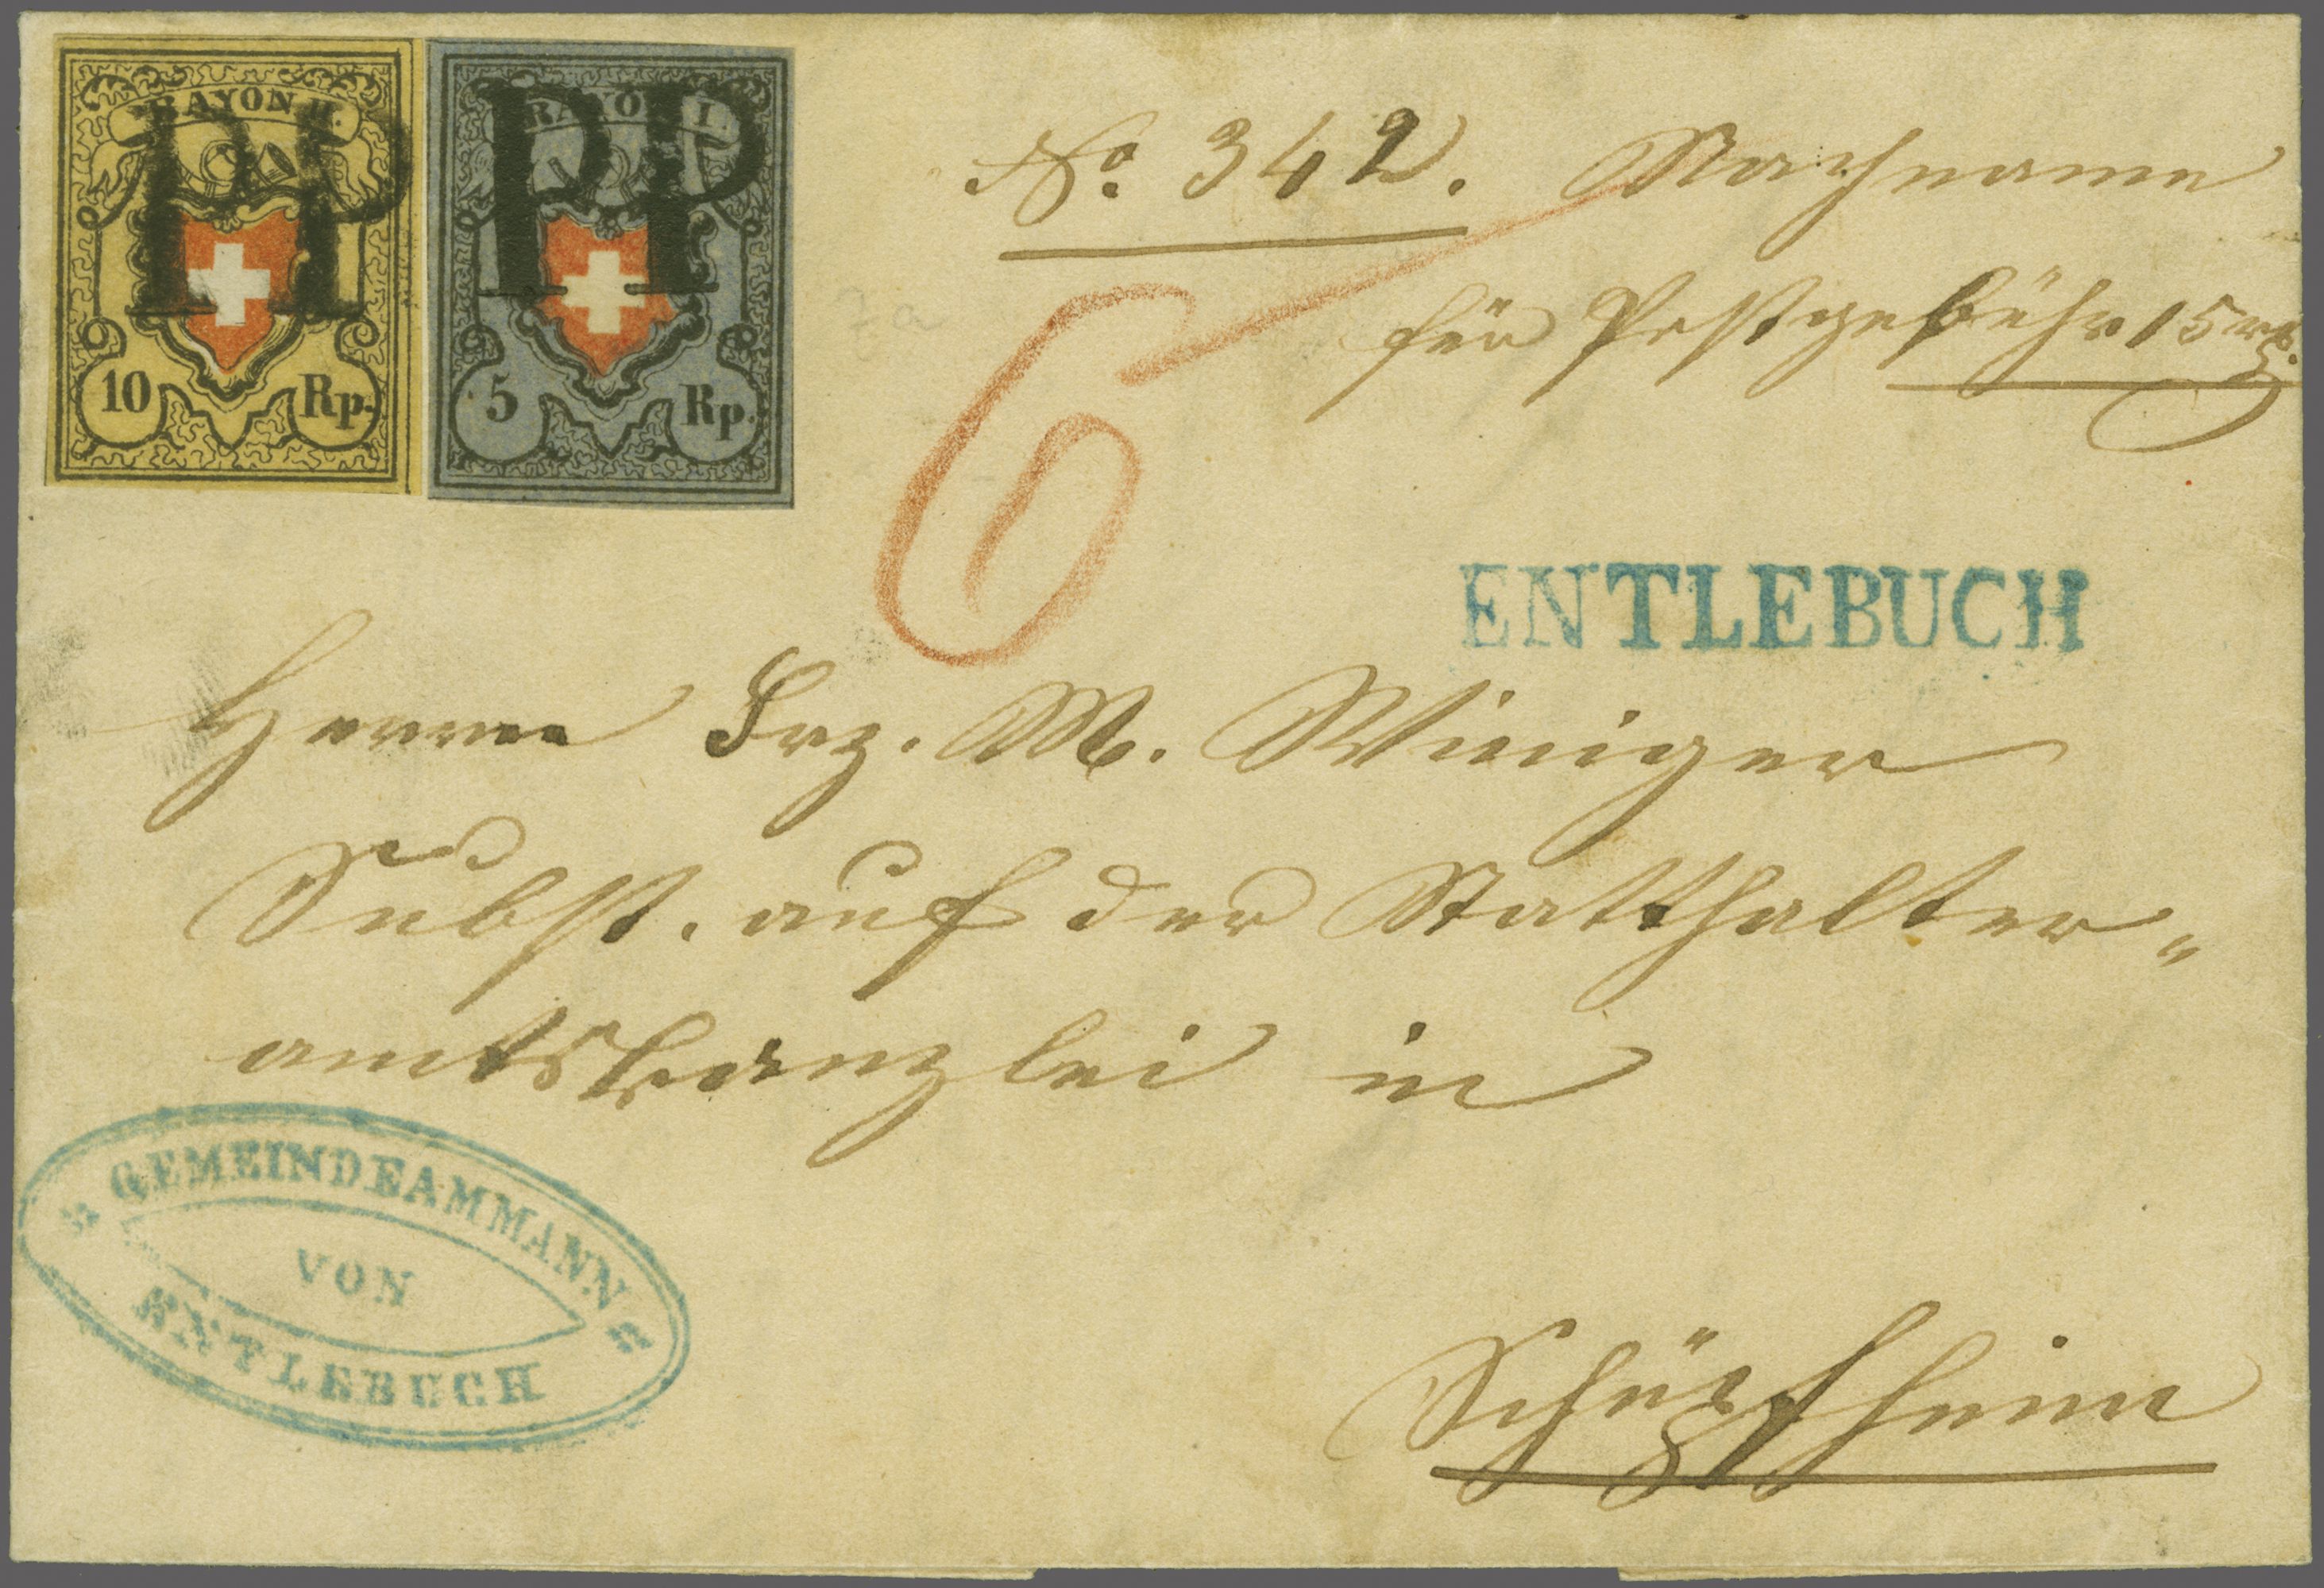 RAYON II.
PP
10 Rp.
RAYON I.
PP
5 Rp.
No. 342. Nachname
für Postgebühr 15 rp.
6
ENTLEBUCH
Herrn Frz. M. Winiger
Subst. auf der Statthalter„
amtskanzlei in
GEMEINDEAMMANN
VON
ENTLEBUCH
Schüpfheim